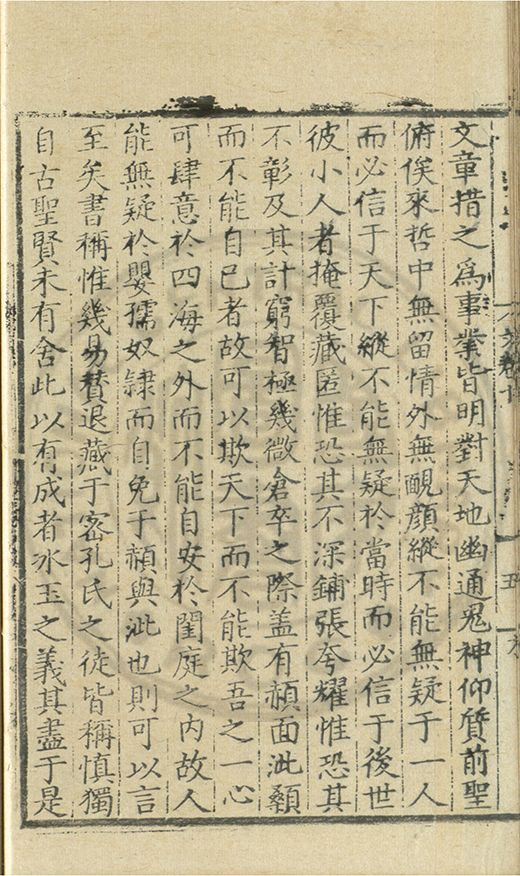 文章措之爲事業皆明對天地幽通鬼神仰質前聖
俯俟來哲中無留情外無覥顔縱不能無疑于一人
而必信于天下縱不能無疑於當時而必信于後世
彼小人者掩覆藏匿惟恐其不深鋪張夸耀惟恐其
不彰及其計窮智極幾微倉卒之際盖有赬面泚顙
而不能自已者故可以欺天下而不能欺吾之一心
可肆意於四海之外而不能自安於閨庭之内故人
能無疑於嬰孺奴隷而自免于赬與泚也則可以言
至矣書稱惟幾易賛退藏于宻孔氏之徒皆稱慎獨
自古聖賢未有舍此以有成者冰玉之義其盡于是